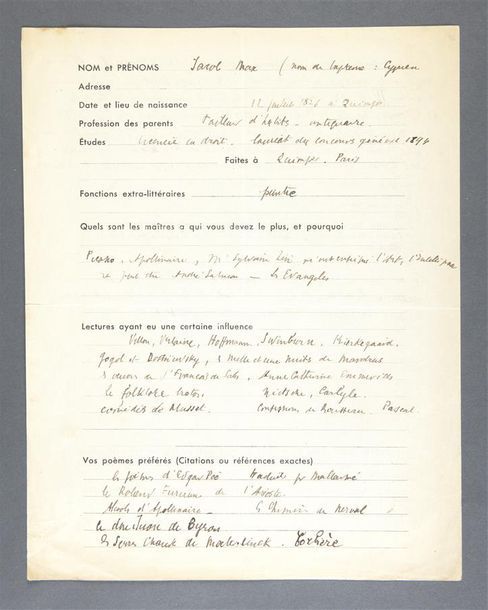 NOM et PRÉNOMS Jacob Max (nom de baptême : Cyprien
Adresse
Date et lieu de naissance 12 juillet 1876 à Quimper
Profession des parents tailleur d'habits - antiquaire
Études licencié en droit. lauréat du concours général 1894
Faites à Quimper. Paris
Fonctions extra-littéraires peintre
Quels sont les maîtres a qui vous devez le plus, et pourquoi
Picasso, Apollinaire, Mr Sylvain Lévi m'ont enseigné l'art,
André Salmon - les Evangiles
Lectures ayant eu une certaine influence
Villon, Verlaine, Hoffmann, Swinburne, Kierkegaard,
Gogol et Dostoïewsky, mille et une nuits de Mardrus
de Sales, Anne Catherine Emmerich
le folklore breton. Nietsche, Carlyle.
comédies de Musset. Confessions de Rousseau. Pascal
Vos poèmes préférés (Citations ou références exactes)
les poèmes d'Edgar Poë traduits par Mallarmé
le Roland Furieux de l'Arioste
Alcools d'Apollinaire - les Chimères de Nerval
le don Juan de Byron
les Serres Chaudes de Maeterlinck. Corbière